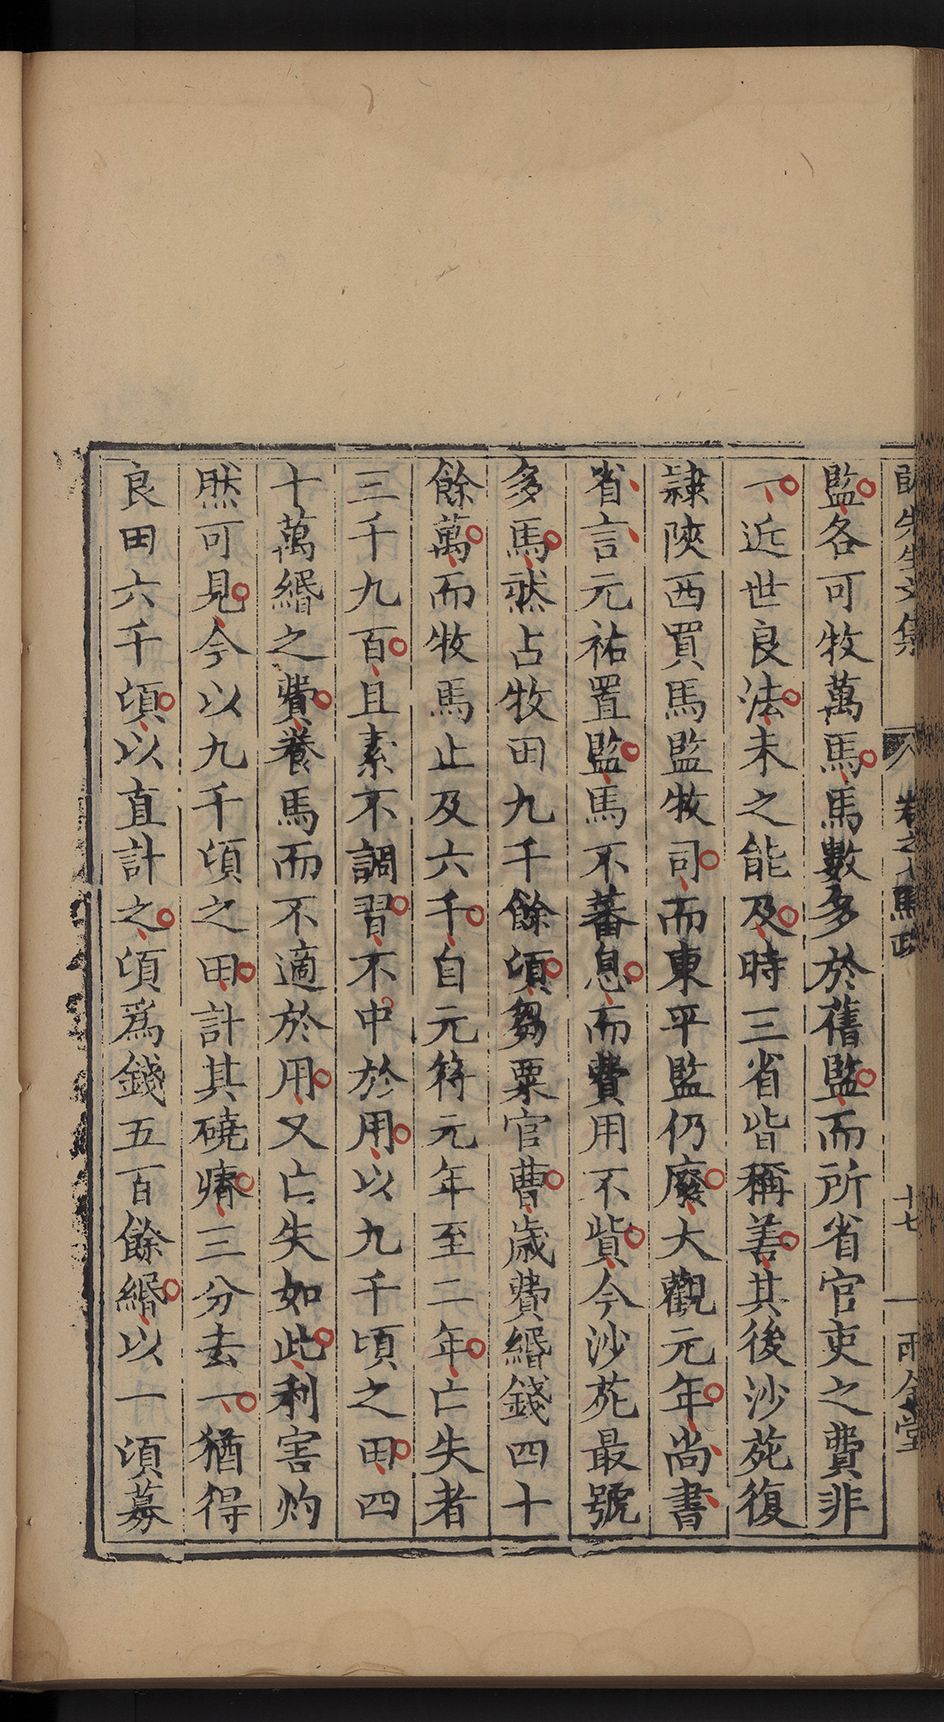 監各可牧萬馬馬數多於舊監而所省官吏之費非
一近世良法未之能及時三省皆稱善其後沙苑復
隷陜西買馬監牧司而東平監仍廢大觀元年尚書
省言元祐置監馬不蕃息而費用不貲今沙苑最號
多馬然占牧田九千餘頃芻粟官曹歲費緡錢四十
餘萬而牧馬止及六千自元符元年至二年亡失者
三千九百且素不調習不中於用以九千頃之田四
十萬緡之費養馬而不適於用又亡失如此利害灼
然可見今以九千頃之田計其磽瘠三分去一猶得
良田六千頃以直計之頃爲錢五百餘緡以一頃募
先生文集 卷之 馬政 十七 雨金堂